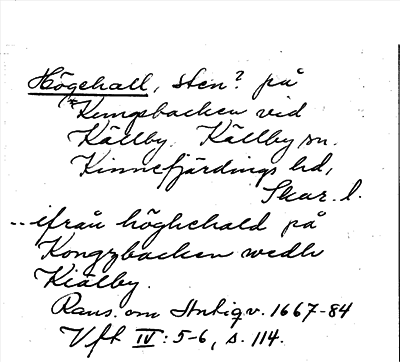 Högehall, sten? på
*Kungsbacken vid
Källby. Källby sn.
Kinnefjärdings hd,
Skar. l.
...ifrån höghehald på
Kongzbacken wedh
Kiälby.
Rans. om Antiqv. 1667-84
Vft IV: 5-6, s. 114.